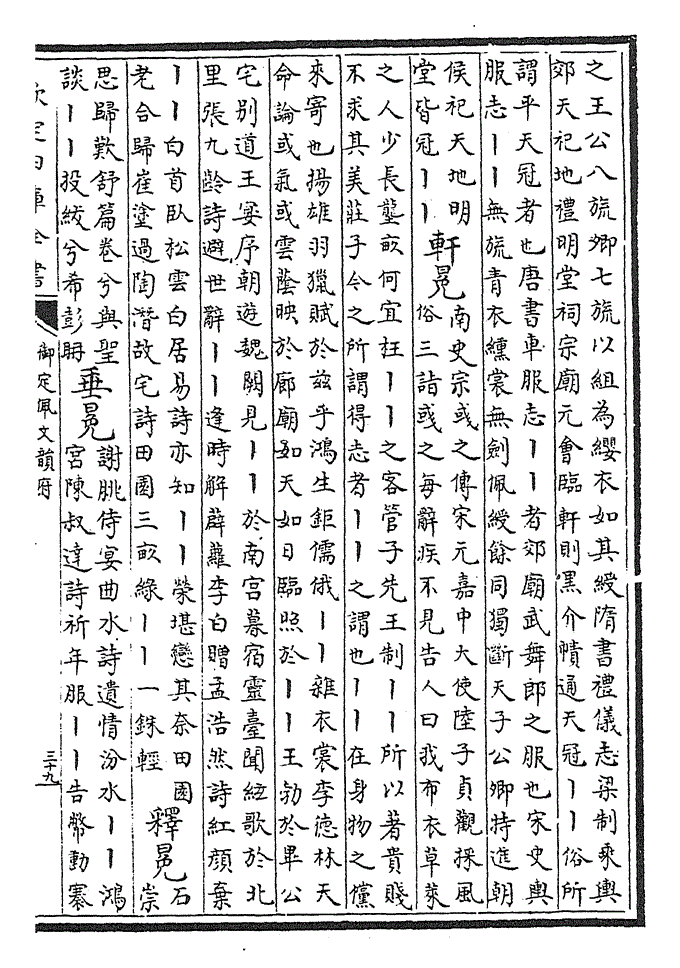 之王公八旒卿七旒以組為纓衣如其綬隋書禮儀志梁制乘輿
郊天祀地禮明堂祠宗廟元會臨軒則黑介幘通天冠丨丨俗所
謂平天冠者也唐書車服志丨丨者郊廟武舞郎之服也宋史輿
服志丨丨無旒青衣纁裳無劍佩綬餘同獨斷天子公卿特進朝
侯祀天地明
堂皆冠丨丨
軒冕
南史宗彧之傳宋元嘉中大使陸子貞觀採風
俗三詣彧之每辭疾不見告人曰我布衣草萊
之人少長壟畝何宜枉丨丨之客管子先王制丨丨所以著貴賤
不求其美莊子今之所謂得志者丨丨之謂也丨丨在身物之儻
來寄也揚雄羽獵賦於兹乎鴻生鉅儒俄丨丨雜衣裳李德林天
命論或氣或雲蔭映於廊廟如天如日臨照於丨丨王勃於畢公
宅别道王宴序朝遊魏闕見丨丨於南宫暮宿靈臺聞絃歌於北
里張九齡詩避世辭丨丨逢時解薜蘿李白贈孟浩然詩紅顔棄
丨丨白首臥松雲白居易詩亦知丨丨榮堪戀其奈田園
老合歸崔塗過陶潛故宅詩田園三畝綠丨丨一銖輕
釋冕
石
崇
思歸歎舒篇卷兮與聖
談丨丨投紱兮希彭耼
垂冕
謝朓侍宴曲水詩遺情汾水丨丨鴻
宫陳叔達詩祈年服丨丨告幣動褰
欽定四庫全書
御定佩文韻府
三十九